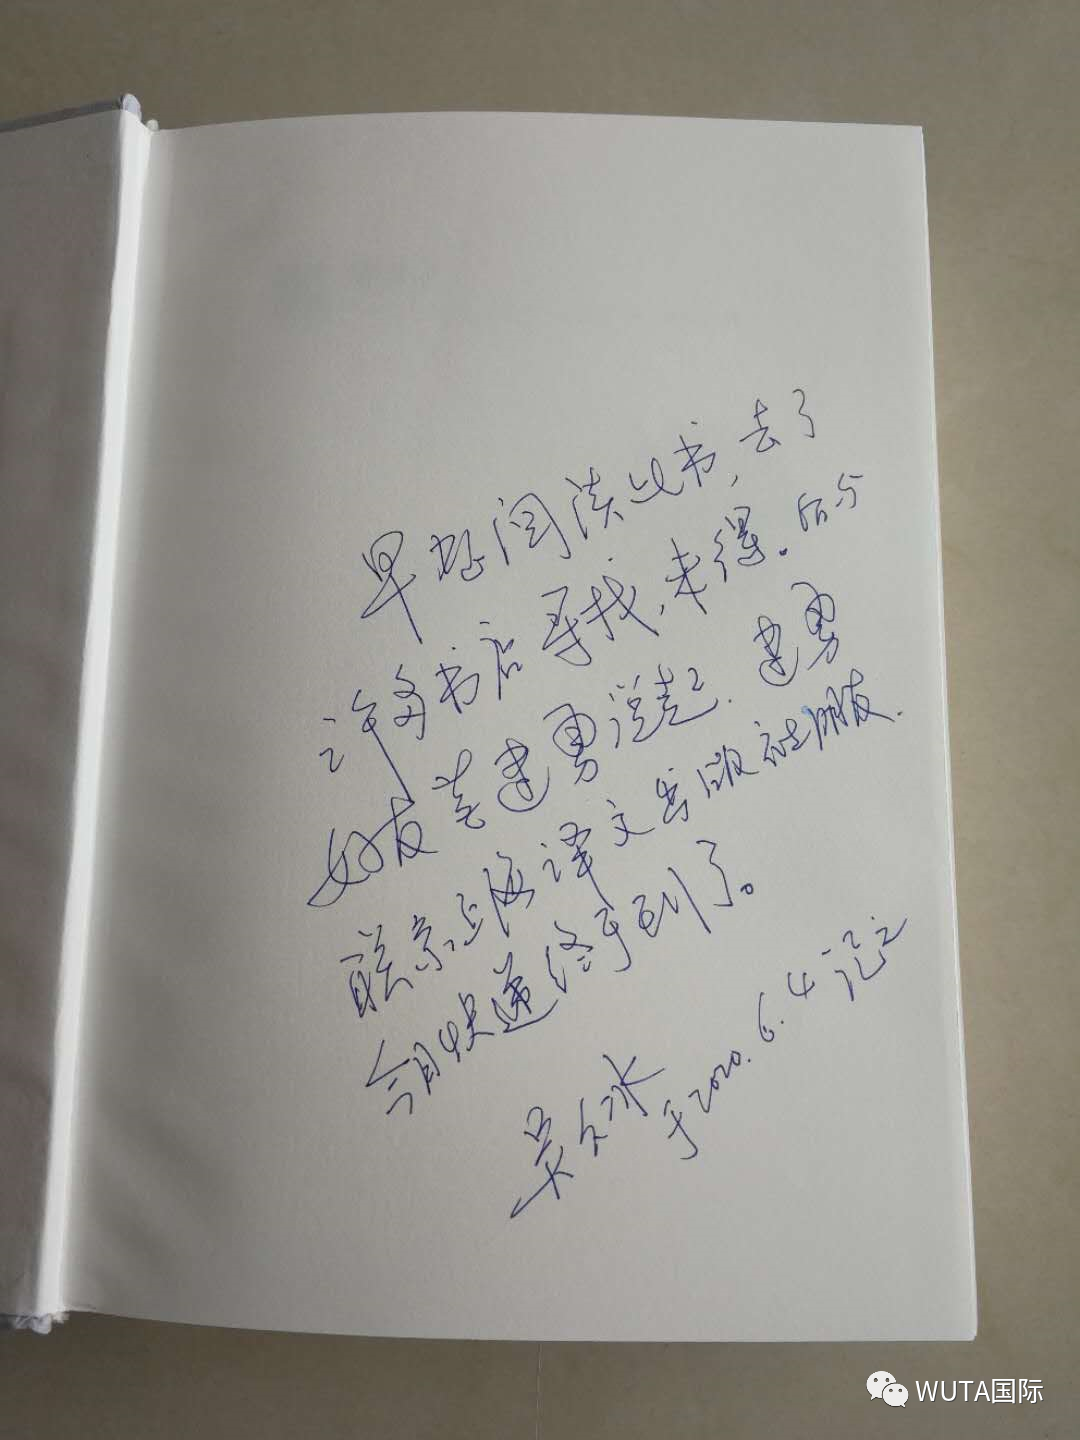 早想阅读此书,去了
许多书店寻找,未得。后与
好友姜建勇说起.建勇
联系上海译文出版社朋友.
今日快递终于到了。
吴久冰
于2020.6.4记之
WUTA国际